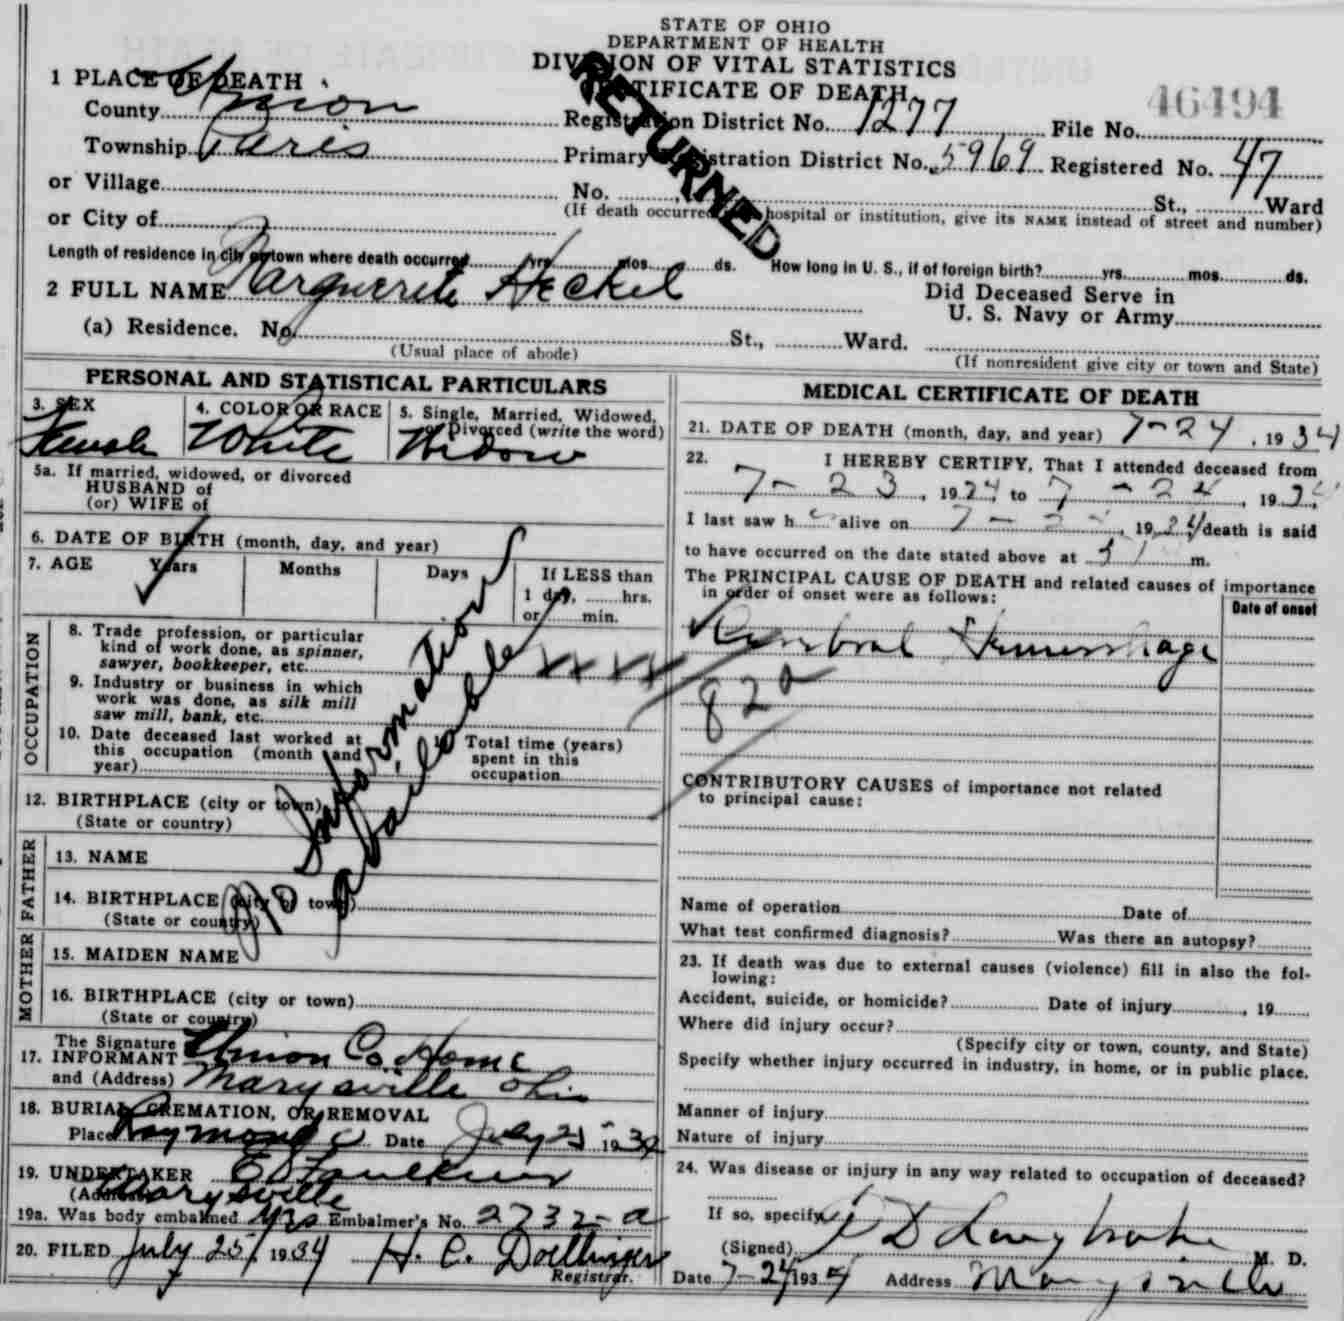 STATE OF OHIO
DEPARTMENT OF HEALTH
DIVISION OF VITAL STATISTICS
CERTIFICATE OF DEATH
RETURNED
46494
1 PLACE OF DEATH
County Union Registration District No. 1277 File No.
Township Paris Primary Registration District No. 5969 Registered No. 47
or Village No. St., Ward
or City of (If death occurred hospital or institution, give its NAME instead of street and number)
Length of residence in city or town where death occurred yrs. mos. ds. How long in U. S., if of foreign birth? yrs. mos. ds.
2 FULL NAME Marguerite Heckel Did Deceased Serve in
U. S. Navy or Army
(a) Residence. No. St., Ward.
(Usual place of abode) (If nonresident give city or town and State)
PERSONAL AND STATISTICAL PARTICULARS
3. SEX 4. COLOR OR RACE 5. Single, Married, Widowed, or Divorced (write the word)
Female White Widow
5a. If married, widowed, or divorced
HUSBAND of
(or) WIFE of
6. DATE OF BIRTH (month, day, and year)
7. AGE Years Months Days If LESS than
1 day, hrs.
or min.
OCCUPATION
8. Trade profession, or particular
kind of work done, as spinner,
sawyer, bookkeeper, etc.
9. Industry or business in which
work was done, as silk mill
saw mill, bank, etc.
10. Date deceased last worked at
this occupation (month and
year)
Total time (years)
spent in this
occupation
No Information available
12. BIRTHPLACE (city or town)
(State or country)
FATHER
13. NAME
14. BIRTHPLACE (city or town)
(State or country)
MOTHER
15. MAIDEN NAME
16. BIRTHPLACE (city or town)
(State or country)
The Signature
17. INFORMANT Union Co. Home
and (Address) Marysville Ohio
18. BURIAL, CREMATION, OR REMOVAL
Place Raymond Date July 25 1934
19. UNDERTAKER E D Faulkner
(Address) Marysville
19a. Was body embalmed yes Embalmer's No. 2732-a
20. FILED July 25, 1934 H. C. Doellinger
Registrar.
MEDICAL CERTIFICATE OF DEATH
21. DATE OF DEATH (month, day, and year) 7-24, 1934
22. I HEREBY CERTIFY, That I attended deceased from
7-23, 1934 to 7-24, 1934
I last saw h alive on 7-24, 1934 death is said
to have occurred on the date stated above at m.
The PRINCIPAL CAUSE OF DEATH and related causes of importance
in order of onset were as follows:
Date of onset
Cerebral Hemorrhage
82a
CONTRIBUTORY CAUSES of importance not related
to principal cause:
Name of operation Date of
What test confirmed diagnosis? Was there an autopsy?
23. If death was due to external causes (violence) fill in also the fol-
lowing:
Accident, suicide, or homicide? Date of injury , 19
Where did injury occur?
(Specify city or town, county, and State)
Specify whether injury occurred in industry, in home, or in public place.
Manner of injury
Nature of injury
24. Was disease or injury in any way related to occupation of deceased?
If so, specify
(Signed) D M. D.
Date 7-24 1934 Address Marysville